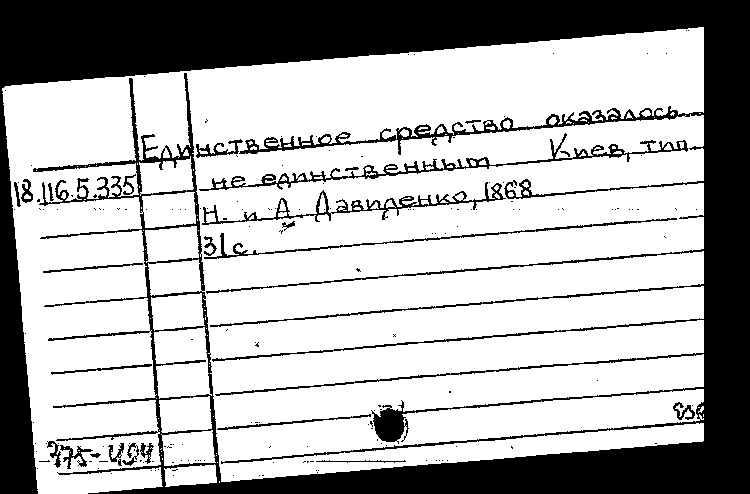 Единственное средство оказалось
18.116.5.335 не единственным Киев, тип.
Н. и А. Давиденко, 1868
31с.